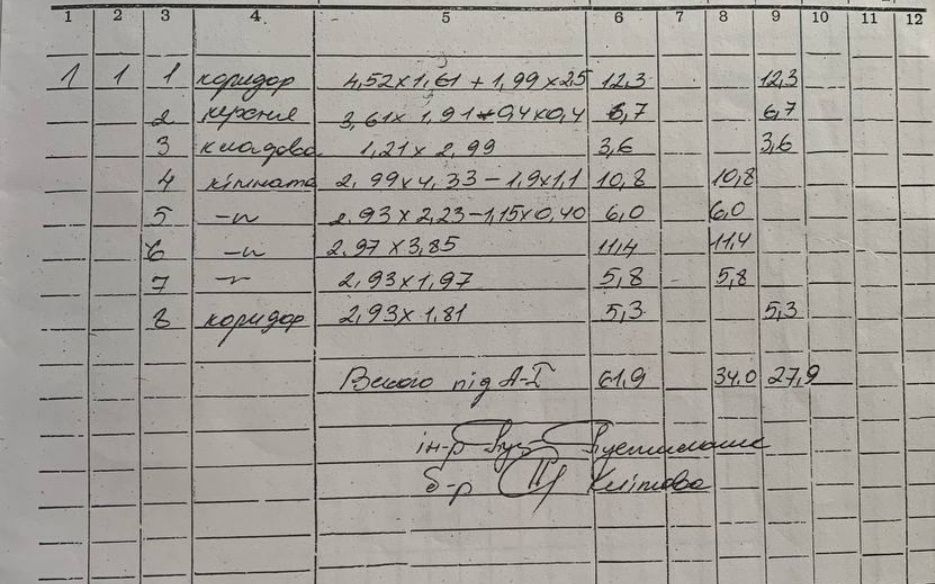 1 2 3 4 5 6 7 8 9 10 11 12
1 1 1 коридор 4,52x1,61 + 1,99x2,5 12,3 12,3
2 кухня 3,61x1,91+0,4x0,4 6,7 6,7
3 кладова 1,21x2,99 3,6 3,6
4 кімната 2,99x4,33-1,9x1,1 10,8 10,8
5 -"- 2,93x2,23-1,15x0,40 6,0 6,0
6 -"- 2,97x3,85 11,4 11,4
7 -"- 2,93x1,97 5,8 5,8
8 коридор 2,93x1,81 5,3 5,3
Всього під А-І 61,9 34,0 27,9
ін-р
б-р Клімова